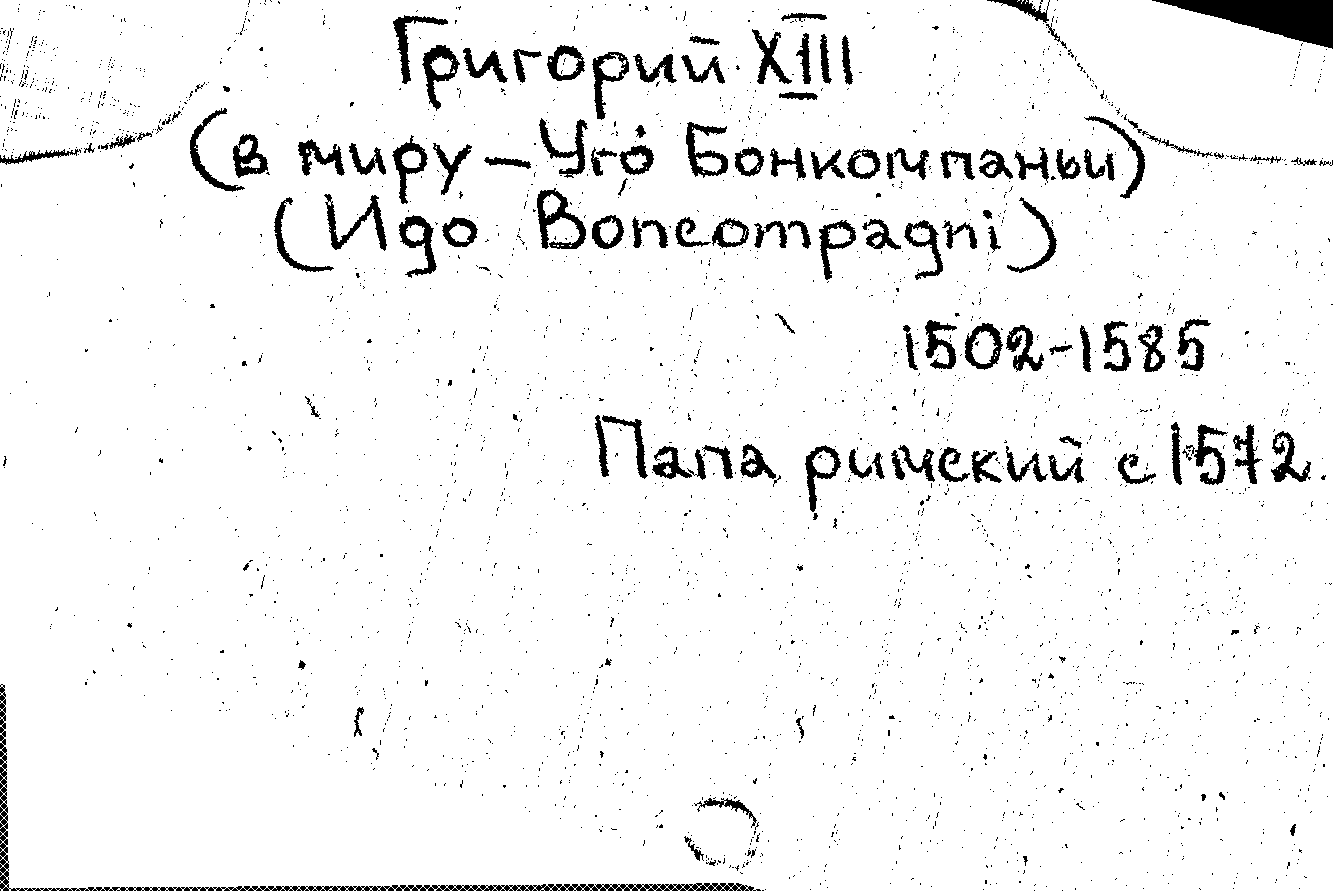 Григорий XIII
(в миру – Уго Бонкомпаньи)
(Идо Boncompagni)
1502-1585
Папа римский с 1572.